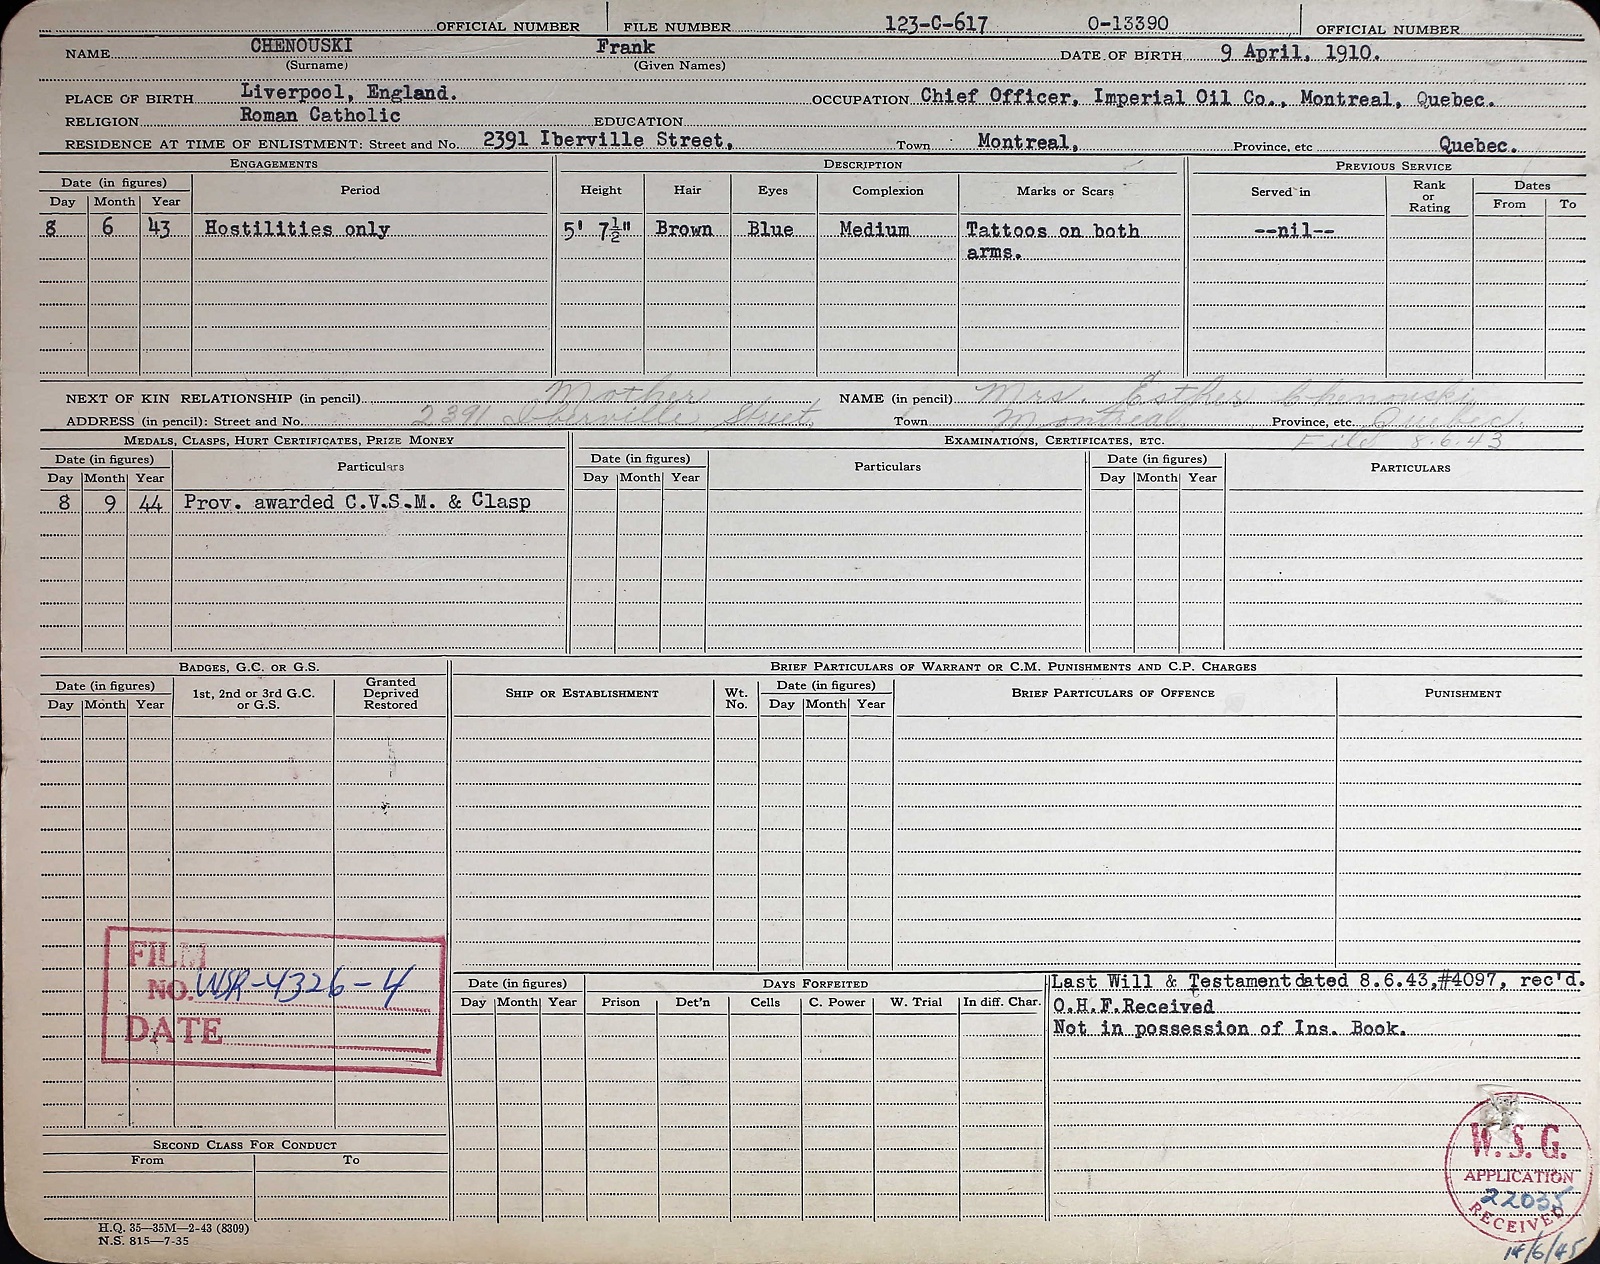 OFFICIAL NUMBER FILE NUMBER 123-C-617 O-13390 OFFICIAL NUMBER
NAME CHENOUSKI Frank DATE OF BIRTH 9 April, 1910.
(Surname) (Given Names)
PLACE OF BIRTH Liverpool, England. OCCUPATION Chief Officer, Imperial Oil Co., Montreal, Quebec.
RELIGION Roman Catholic EDUCATION
RESIDENCE AT TIME OF ENLISTMENT: Street and No. 2391 Iberville Street, Town Montreal, Province, etc Quebec.
ENGAGEMENTS DESCRIPTION PREVIOUS SERVICE
Date (in figures) Period Height Hair Eyes Complexion Marks or Scars Served in Rank or Rating Dates
Day Month Year From To
8 6 43 Hostilities only 5' 7½" Brown Blue Medium Tattoos on both --nil--
arms.
NEXT OF KIN RELATIONSHIP (in pencil) Mother NAME (in pencil) Mrs. Esther Chenouski
ADDRESS (in pencil): Street and No. 2391 Iberville Street Town Montreal Province, etc. Quebec.
File 8.6.43
MEDALS, CLASPS, HURT CERTIFICATES, PRIZE MONEY EXAMINATIONS, CERTIFICATES, ETC.
Date (in figures) Particulars Date (in figures) Particulars Date (in figures) PARTICULARS
Day Month Year Day Month Year Day Month Year
8 9 44 Prov. awarded C.V.S.M. & Clasp
BADGES, G.C. OR G.S. BRIEF PARTICULARS OF WARRANT OR C.M. PUNISHMENTS AND C.P. CHARGES
Date (in figures) 1st, 2nd or 3rd G.C. or G.S. Granted Deprived Restored SHIP OR ESTABLISHMENT Wt. No. Date (in figures) BRIEF PARTICULARS OF OFFENCE PUNISHMENT
Day Month Year Day Month Year
FILM
NO. WSR-4326-4
DATE
Date (in figures) DAYS FORFEITED
Day Month Year Prison Det'n Cells C. Power W. Trial In diff. Char.
Last Will & Testament dated 8.6.43, #4097, rec'd.
O.H.F. Received
Not in possession of Ins. Book.
SECOND CLASS FOR CONDUCT
From To
W.S.G.
APPLICATION
22035
RECEIVED
14/6/45
H.Q. 35—35M—2-43 (8309)
N.S. 815—7-35